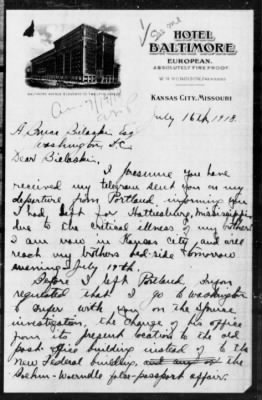 HOTEL
BALTIMORE
EUROPEAN.
ABSOLUTELY FIRE PROOF.
BALTIMORE AVENUE ELEVENTH TO TWELFTH STREETS
KANSAS CITY, MISSOURI
July 16th 1918.
A. Bruce Bielaski Esq
Washington D.C.
Dear Bielaski:
I presume you have
received my telegram sent you on my
departure from Portland, informing you
I had left for Hattiesburg, Mississippi
due to the critical illness of my brother
I am now in Kansas City and will
reach my brothers bed-side tomorrow
evening July 17th.
Before I left Portland
requested that I go to Washington
to confer with you on the
investigation, the change of his office
from its present location to the old
post office building instead of to the
new Federal building, the
false-passport affair.